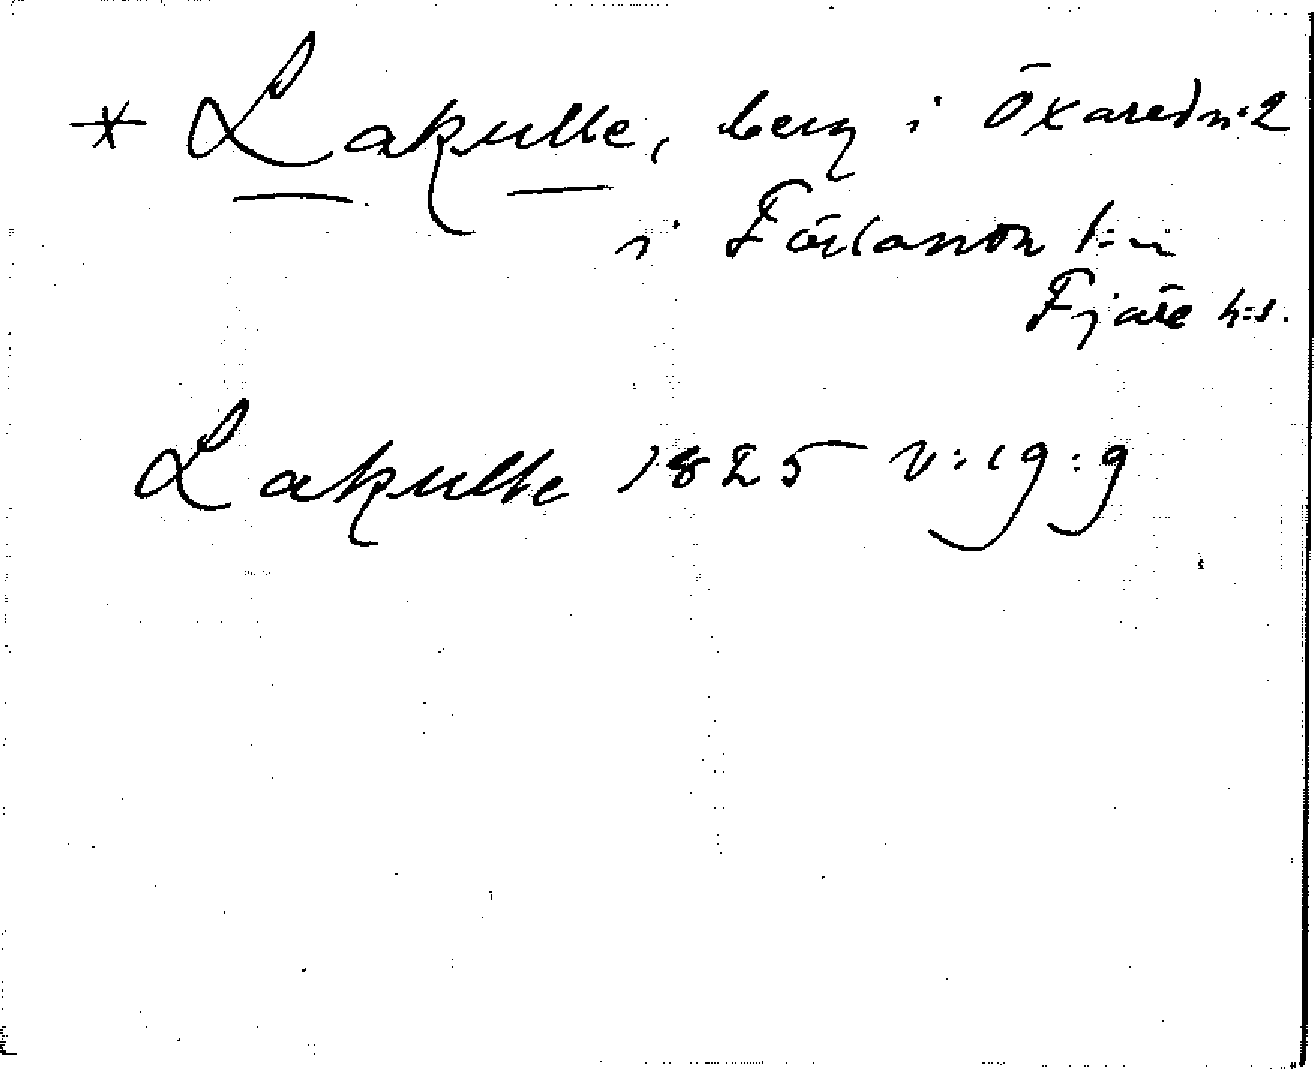 * Lakulle, berg i Öxared n:2
i Förlanda s:n
Fjäre h:d.
Lakulle 1825 V:19:9